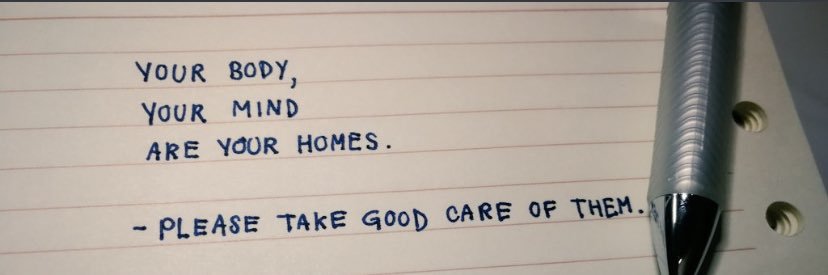 YOUR BODY,
YOUR MIND
ARE YOUR HOMES.
- PLEASE TAKE GOOD CARE OF THEM.